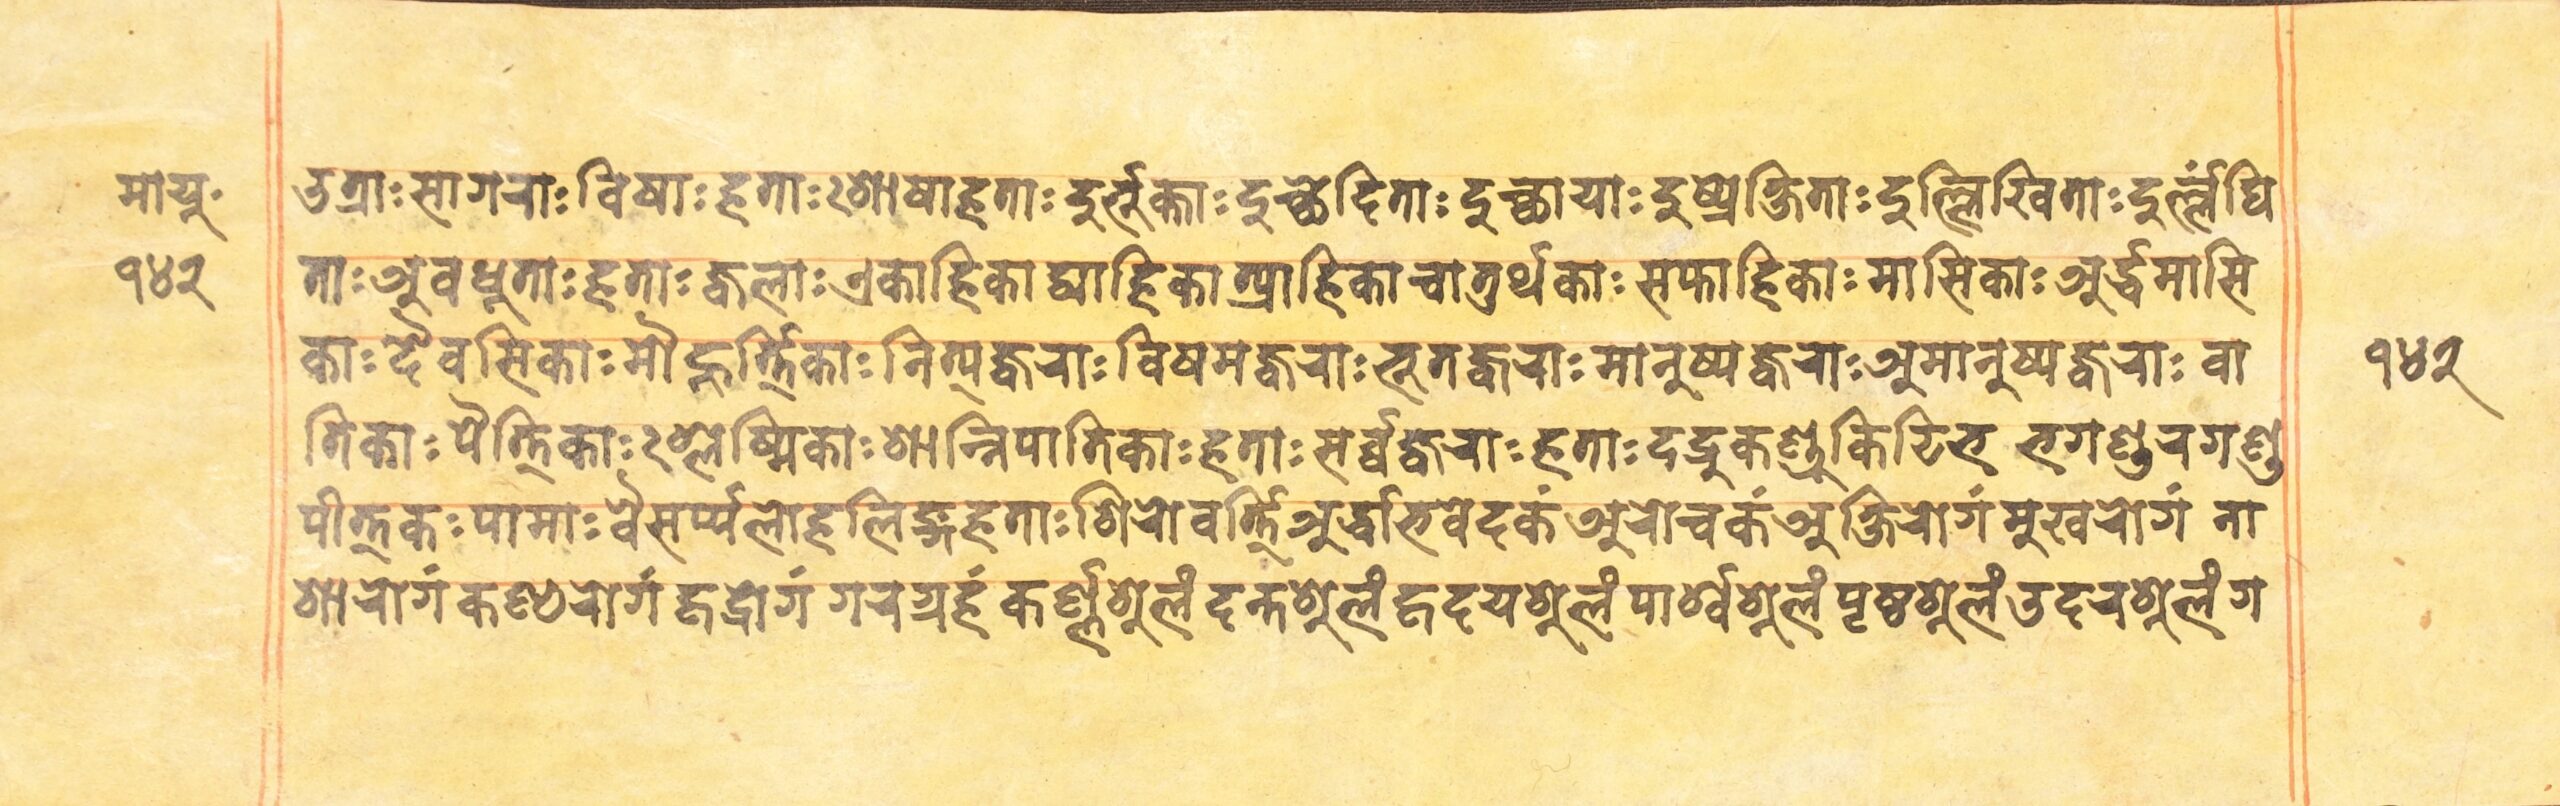 मायुः
१४२
उत्राः सागराः विषाः हताः शोषाहताः दुर्भुक्ताः दुच्छेदिताः दुच्छायाः दुष्प्रेक्षिताः दुल्लिखिताः दुर्ल्लंघि
ताः अवधुताः हताः ज्वलाः एकाहिका द्व्याहिका त्र्याहिका चातुर्थकाः सप्ताहिकाः मासिकाः अर्द्धमासि
काः दैवसिकाः मौहूर्त्तिकाः नित्यज्वराः विषमज्वराः भूतज्वराः मानुष्यज्वराः अमानुष्यज्वराः वा
तिकाः पैत्तिकाः श्लेष्मिकाः शान्निपातिकाः हताः सर्व्वज्वराः हताः दद्रुकण्डुकिटिभ भगण्डरगण्डु
पीत्तकः पामाः वैसर्प्यलोहलिङ्गहताः शिरोवर्त्ति अर्द्धावभेदकं अरोचकं अक्षिरोगं मुखरोगं ना
शारोगं कण्ठरोगं हृद्रोगं गरग्रहं कर्ण्णशूलं दन्तशूलं हृदयशूलं पार्श्वशूलं पृष्ठशूलं उदरशूलं ग
१४२